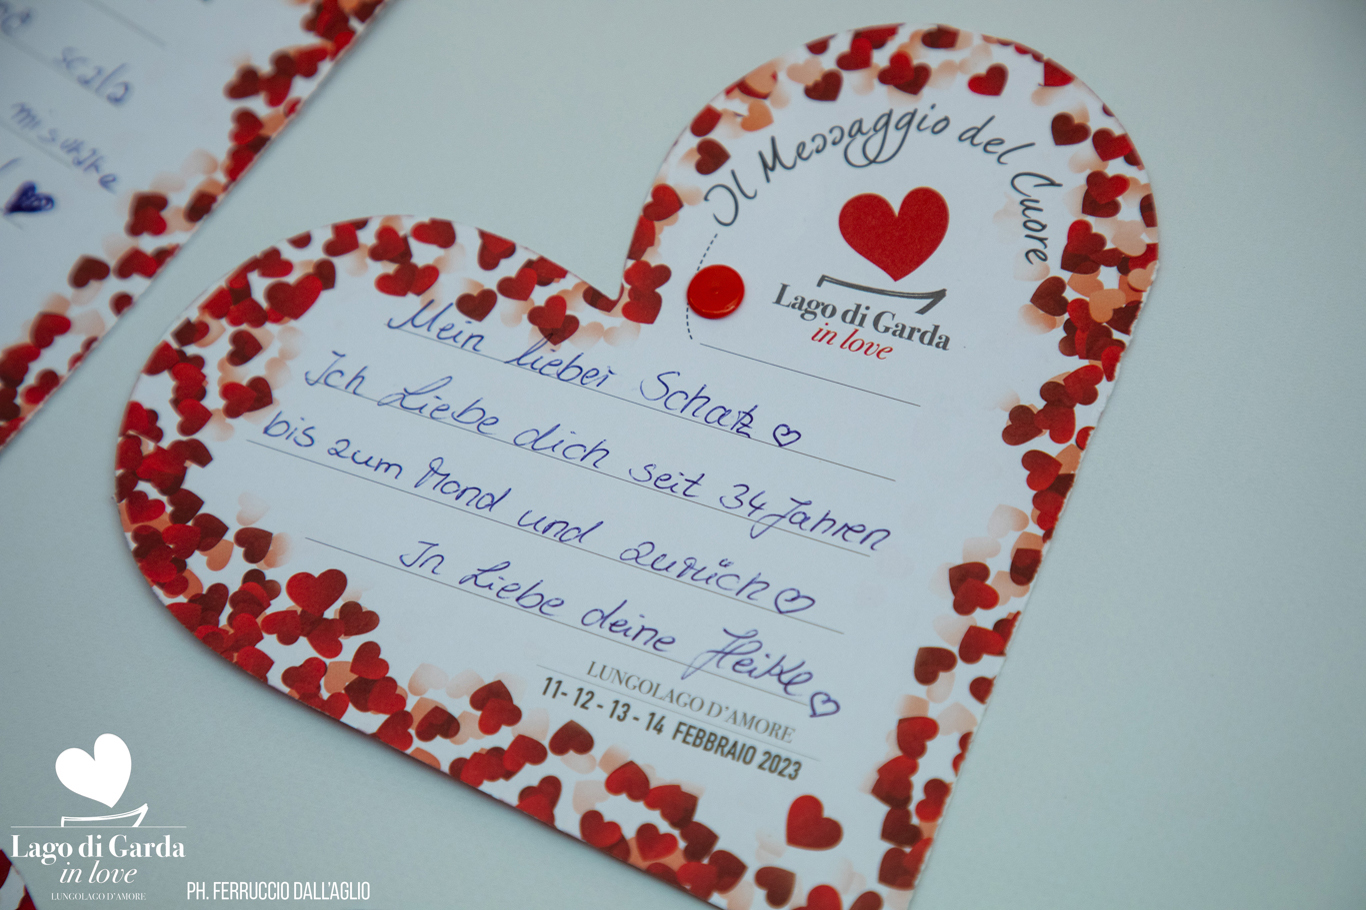 scala
misurare
Il Messaggio del Cuore
Lago di Garda
in love
Mein lieber Schatz ♡
Ich Liebe dich seit 34 Jahren
bis zum Mond und zurück ♡
In Liebe deine Heike ♡
LUNGOLAGO D'AMORE
11 - 12 - 13 - 14 FEBBRAIO 2023
Lago di Garda
in love
LUNGOLAGO D'AMORE
PH. FERRUCCIO DALL'AGLIO